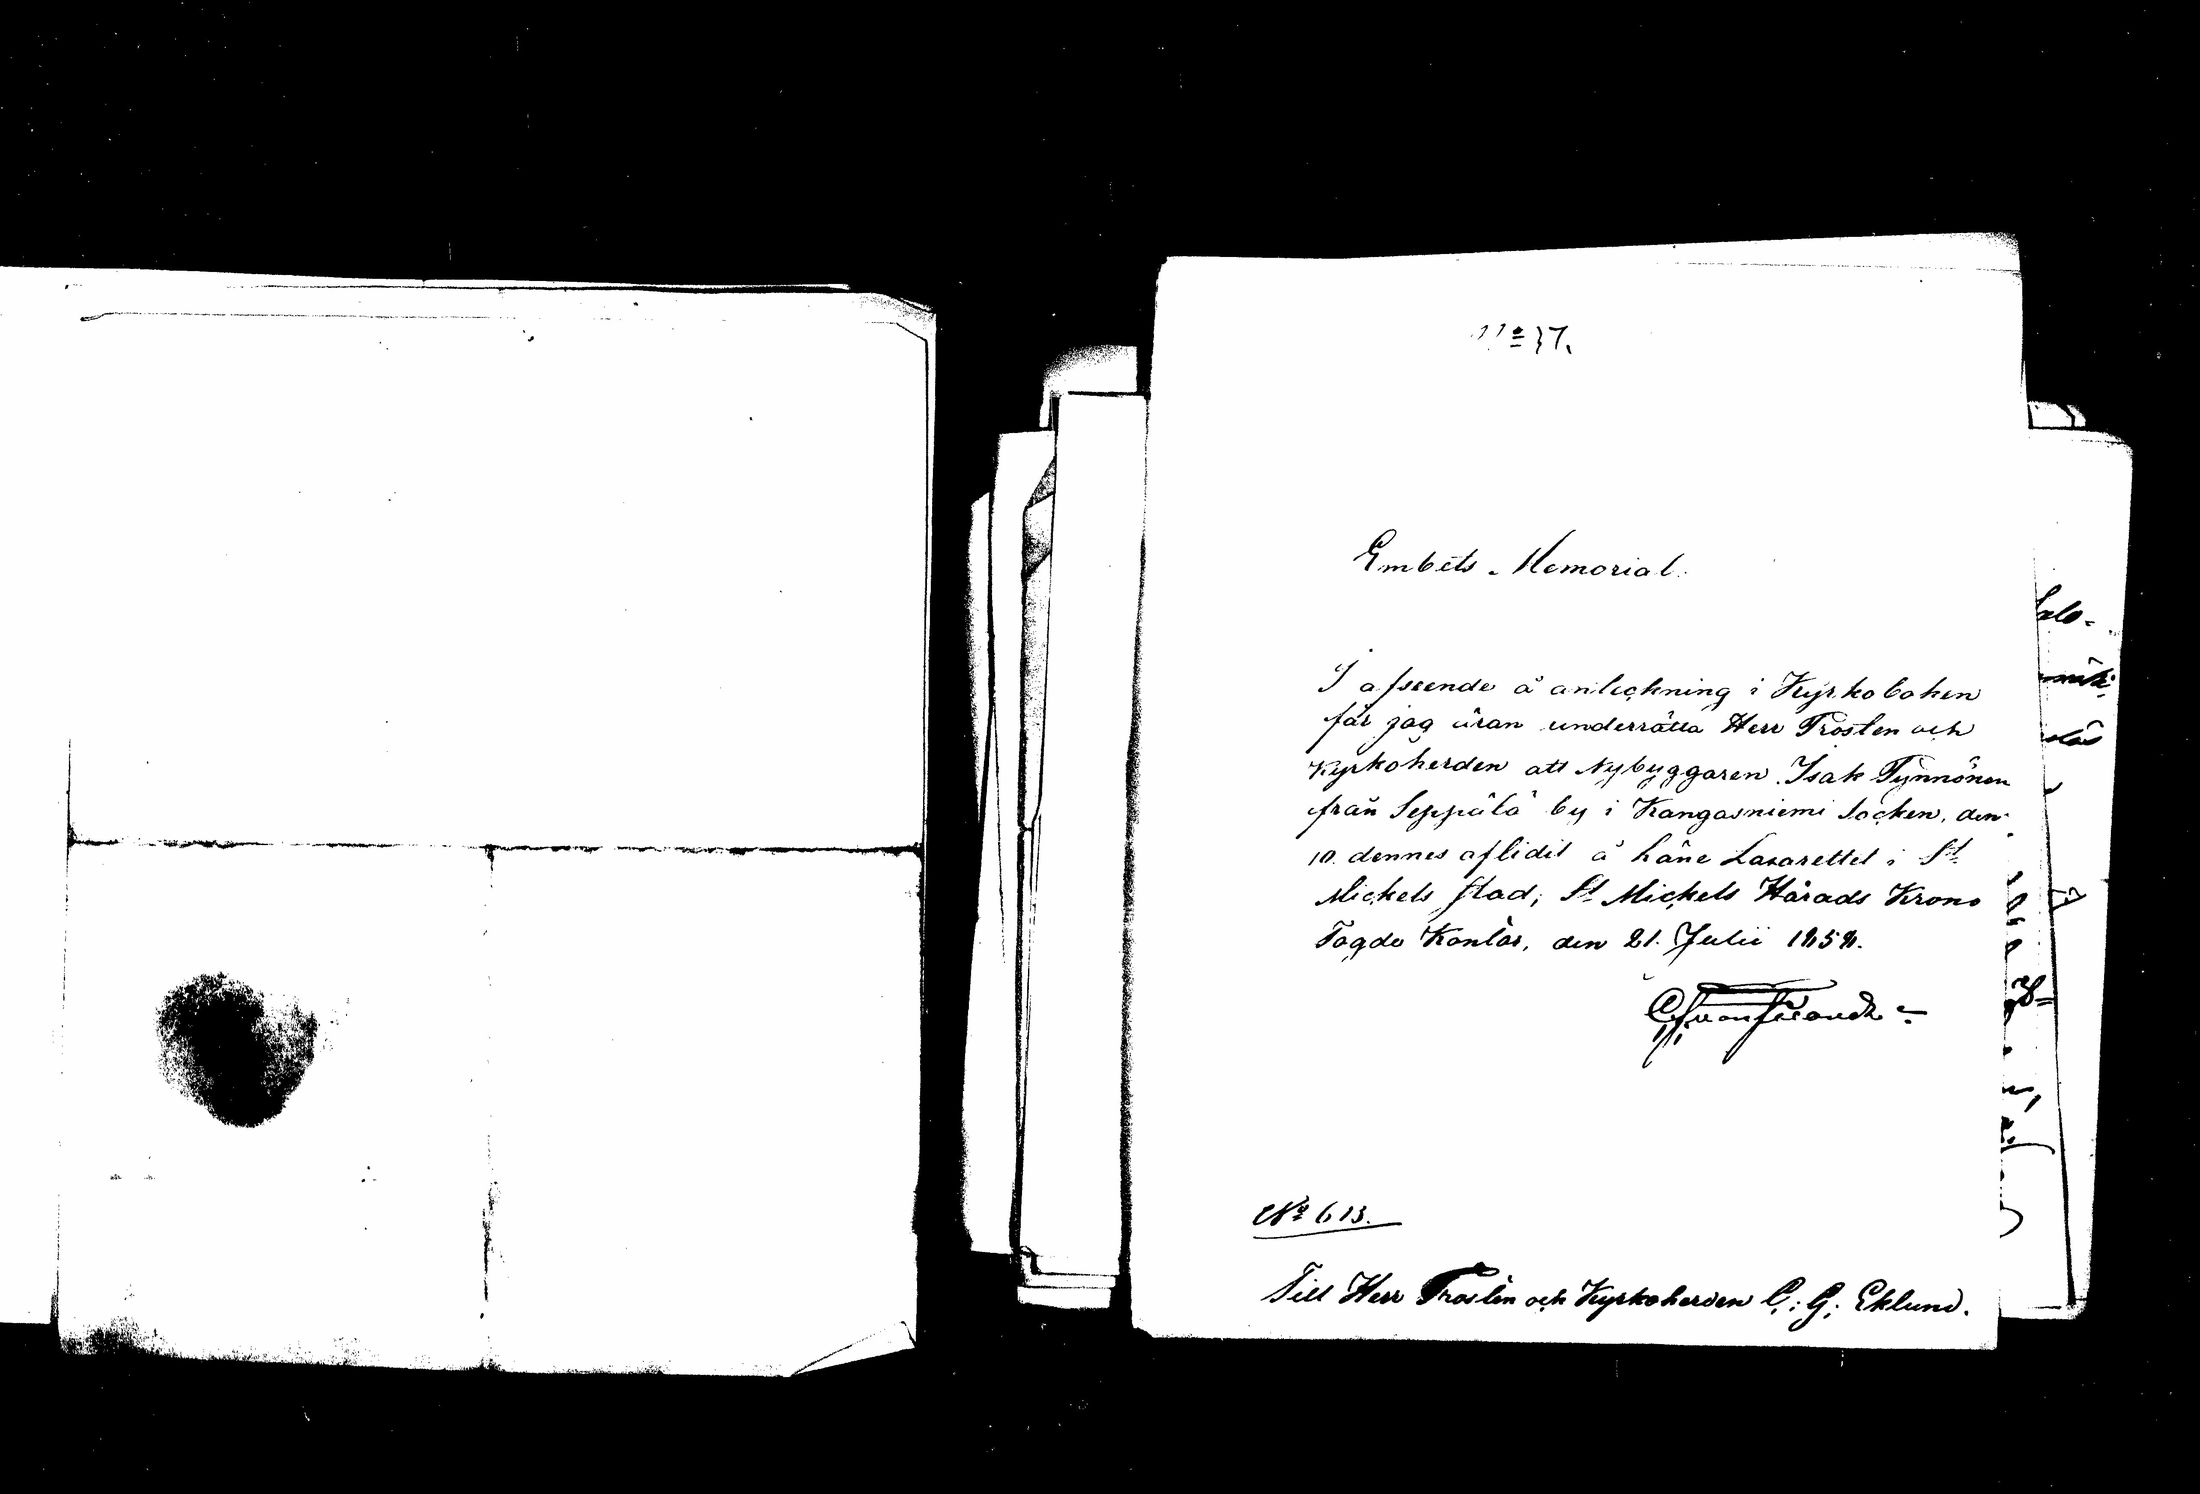 No 37.
Embets-Memorial.
I afseende å anteckning i Kyrkoboken
får jag äran underrätta Herr Prosten och
Kyrkoherden att Nybyggaren Isak Tynnönen
från Seppälä by i Kangasniemi Socken, den
10. dennes aflidit å häne Lasarettet i St
Michels stad; St Michels Härads Krono
Fogde Kontor, den 21. Julii 1858.
No 613.
Till Herr Prosten och Kyrkoherden C. G. Eklund.